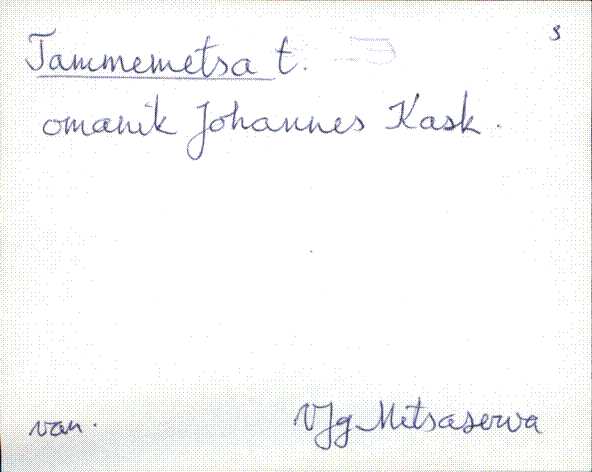 s
Tammemetsa t.
omanik Johannes Kask.
van. VJg Metsaserva